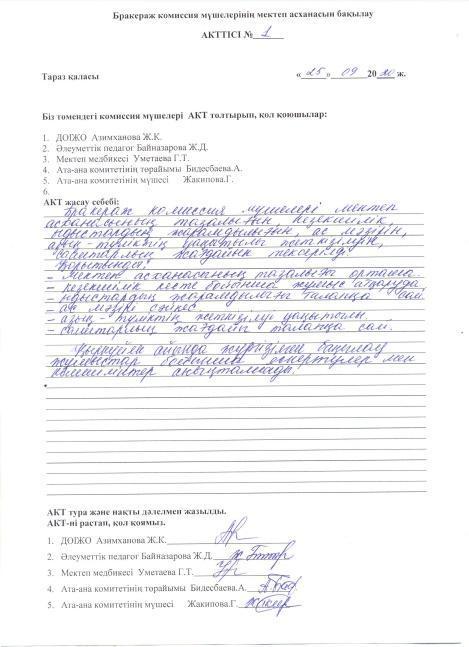 Бракераж комиссия мүшелерінің мектеп асханасын бақылау
АКТТІСІ № 1
Тараз қаласы «25» 09 2020 ж.
Біз төмендегі комиссия мүшелері АКТ толтырып, қол қоюшылар:
1. ДОІЖО Азимханова Ж.К.
2. Әлеуметтік педагог Байназарова Ж.Д.
3. Мектеп медбикесі Уметаева Г.Т.
4. Ата-ана комитетінің төрайымы Бидесбаева.А.
5. Ата-ана комитетінің мүшесі Жакипова.Г.
6.
АКТ жасау себебі:
Бракераж комиссия мүшелері мектеп
асханасының тазалығын кезекшілік,
ыдыстардың жарамдылығын, ас мәзірін,
азық-түліктің уақытылы жеткізілуін,
санитарлық жағдайын тексерілді
Қорытынды:
- Мектеп асханасының тазалығы орташа
- кезекшілік кесте бойынша жұмыс атқаруда,
- ыдыстардың жарамдылығы талапқа сай.
- ас мәзірі сәйкес
- азық-түліктің жеткізілуі уақытылы.
- санитарлық жағдайы талапқа сай.
Қыркүйек айында жүргізілген бақылау
жұмыстар бойынша ескертулер мен
кемшіліктер анықталмады.
АКТ тура және нақты дәлелмен жазылды.
АКТ-ні растап, қол қоямыз.
1. ДОІЖО Азимханова Ж.К.
2. Әлеуметтік педагог Байназарова Ж.Д.
3. Мектеп медбикесі Уметаева Г.Т.
4. Ата-ана комитетінің төрайымы Бидесбаева.А.
5. Ата-ана комитетінің мүшесі Жакипова.Г.